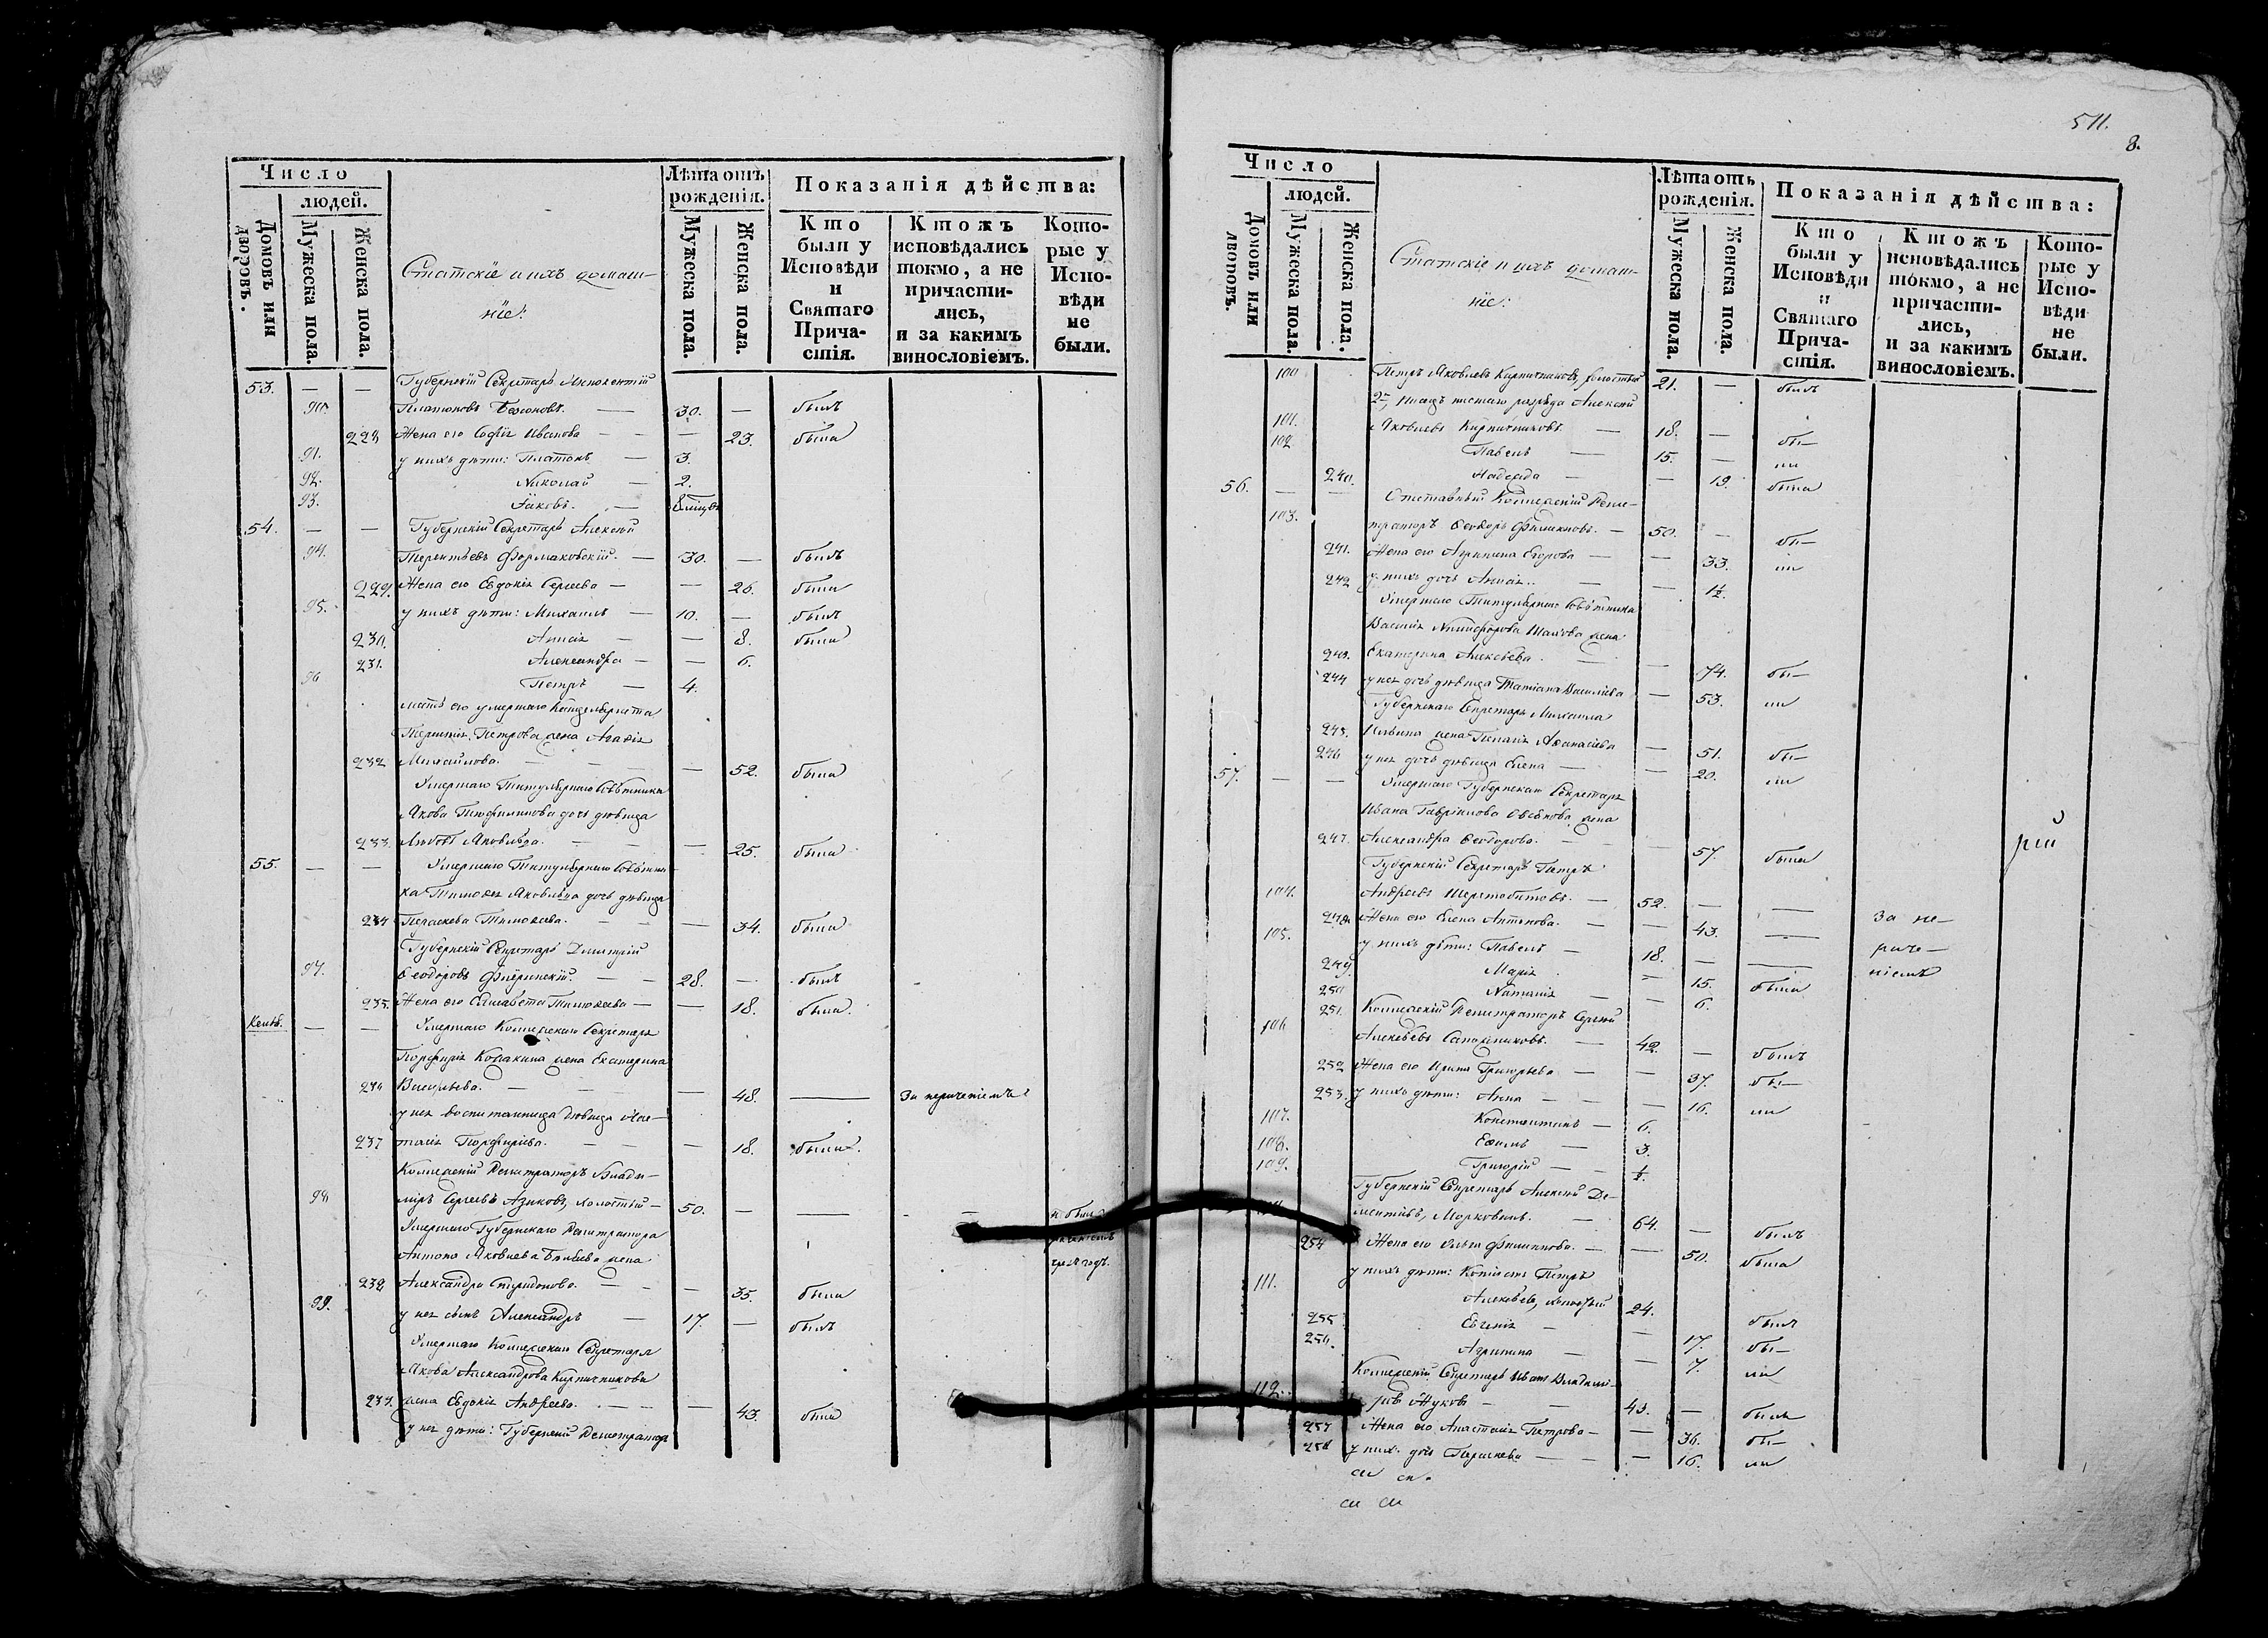 Число
людей.
Домовъ или дворовъ.
Мужеска пола.
Женска пола.
Статскіе и ихъ домаш-
ніе:
Лѣта отъ
рожденія.
Мужеска пола.
Женска пола.
Показанія дѣйства:
Кто
были у
Исповѣди
и
Святаго
Прича-
стія.
Ктожъ
исповѣдались
токмо, а не
причасти-
лись,
и за какимъ
винословіемъ.
Кото-
рые у
Испо-
вѣди
не
были.
53. — — Губернскій Секретарь Иннокентій
90. Платоновъ — 30. — былъ
228 Жена его Софія Иванова — — 23. была
91. у нихъ дѣти: Платонъ — 3.
92. Николай — 2.
93. Іаковъ. —
54. — — Губернскій Секретарь Алексѣй
94. Терентьевъ Формаковскій. — 30. — былъ
229. Жена его Евдокія Сергеева — — 26. была
95. у нихъ дѣти: Михаилъ — 10. — былъ
230. Анна — — 8. была
231. Александра — — 6.
96 Петръ — 4.
мать его умершаго Канцеляриста
Терентія Петрова жена Агафія
232 Михайлова. — — — 52. была
Умершаго Титулярнаго Совѣтника
Якова дочь дѣвица
233. Любовь Яковлева. — — — 25. была
55. — — Умершаго Титулярнаго Совѣтни-
ка Тимоѳея Яковлева дочь дѣвица
234 Параскева Тимоѳеева. — — — 34. была
Губернскій Секретарь Дмитрій
97. Ѳеодоровъ — — 28. — былъ
235. Жена его Елисавета Тимоѳеева — — 18. была.
— — Умершаго Коллежскаго Секретаря
Порфирія жена Екатерина
236 Васильева. — — — 48. — За нерачениемъ
у нея воспитанница дѣвица Нас-
237 тасія Порфирьева. — — — 18. была.
Коллежскій Регистраторъ Влади-
98 міръ Сергеевъ Языковъ, холостый — 50. — — — н. былъ
Умершаго Губернскаго Регистратора
Антона Яковлева жена
238 Александра Спиридонова. — — — 35. была
99. у нея сынъ Александръ — 17. — былъ
Умершаго Коллежскаго Секретаря
Якова Александрова Кирпичникова
239. жена Евдокія Андреева. — — — 43. была
у нея дѣти: Губернскій Регистраторъ
511.
8.
Число
людей.
Домовъ или дворовъ.
Мужеска пола.
Женска пола.
Статскіе и ихъ домаш-
ніе:
Лѣта отъ
рожденія.
Мужеска пола.
Женска пола.
Показанія дѣйства:
Кто
были у
Исповѣди
и
Святаго
Прича-
стія.
Ктожъ
исповѣдались
токмо, а не
причасти-
лись,
и за какимъ
винословіемъ.
Кото-
рые у
Испо-
вѣди
не
были.
100 Петръ Яковлевъ Кирпичниковъ, холостый 21. — былъ
2й, писецъ разряда Алексѣй
101. Яковлевъ Кирпичниковъ. — 18. — бы—
102 Павелъ — 15. — ли
240. Надежда — — 19. была
56. — — Отставный Коллежскій Реги-
103. страторъ Ѳеодоръ Филипповъ. — 50. — бы—
241. Жена его Агрипина Егорова — — 33. ли
242 у нихъ дочь Анисія. — — 1½.
Умершаго Титулярнаго Совѣтника
Василія Никифорова жена
243. Екатерина Алексѣева. — — 74. бы—
244 у нея дочь дѣвица Татіана Васильева — 53. ли
Губернскаго Секретаря Михаила
245. Ильина жена Пелагія Аѳанасіева — 51. бы—
246 у нея дочь дѣвица Елена — — 20. ли
57. — — Умершаго Губернскаго Секретаря
Ивана Гавріилова жена
247. Александра Ѳеодорова. — — 57. была
рій
Губернскій Секретарь Петръ
104. Андреевъ — 52. — —
248. Жена его Елена Антонова. — — 43. — За не—
105. у нихъ дѣти: Павелъ — 18. — — раче—
249. Марія — 15. была ніемъ
250 Наталія — — 6.
251. Коллежскій Регистраторъ Сергѣй
106 Алексѣевъ Сапожниковъ. — 42. — былъ
252 Жена его Ирина Григорьева — — 37. бы—
253. у нихъ дѣти: Анна — — — 16. ли
107. Константинъ — 6.
108. Ефимъ — 3.
109. Григорій — — ½.
Губернскій Секретарь Алексѣй Де-
110 ментьевъ, Морковинъ. — 64. — былъ
254 Жена его Ольга Филиппова. — — 50. была
111. у нихъ дѣти: Копіистъ Петръ
Алексѣевъ, холостый 24. былъ
255 Евгенія — — 17. бы—
256. Агрипина — — 7. ли
Коллежскій Секретарь Иванъ Владимі-
112. ровъ Жуковъ — — 43. — былъ
257 Жена его Анастасія Петрова — — 36. бы—
258 у нихъ дочь Параскева — — — 16. ли